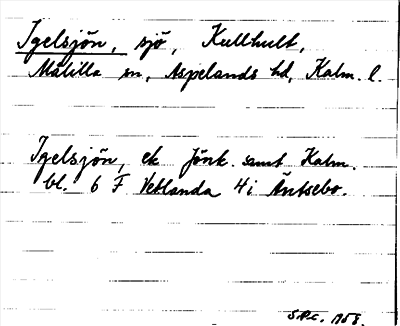 Igelsjön, sjö, Kullhult,
Målilla sn, Aspelands hd, Kalm. l.
Igelsjön, ek Jönk. samt Kalm.
bl. 6 F Vetlanda 4i Äntsebo.
1958.